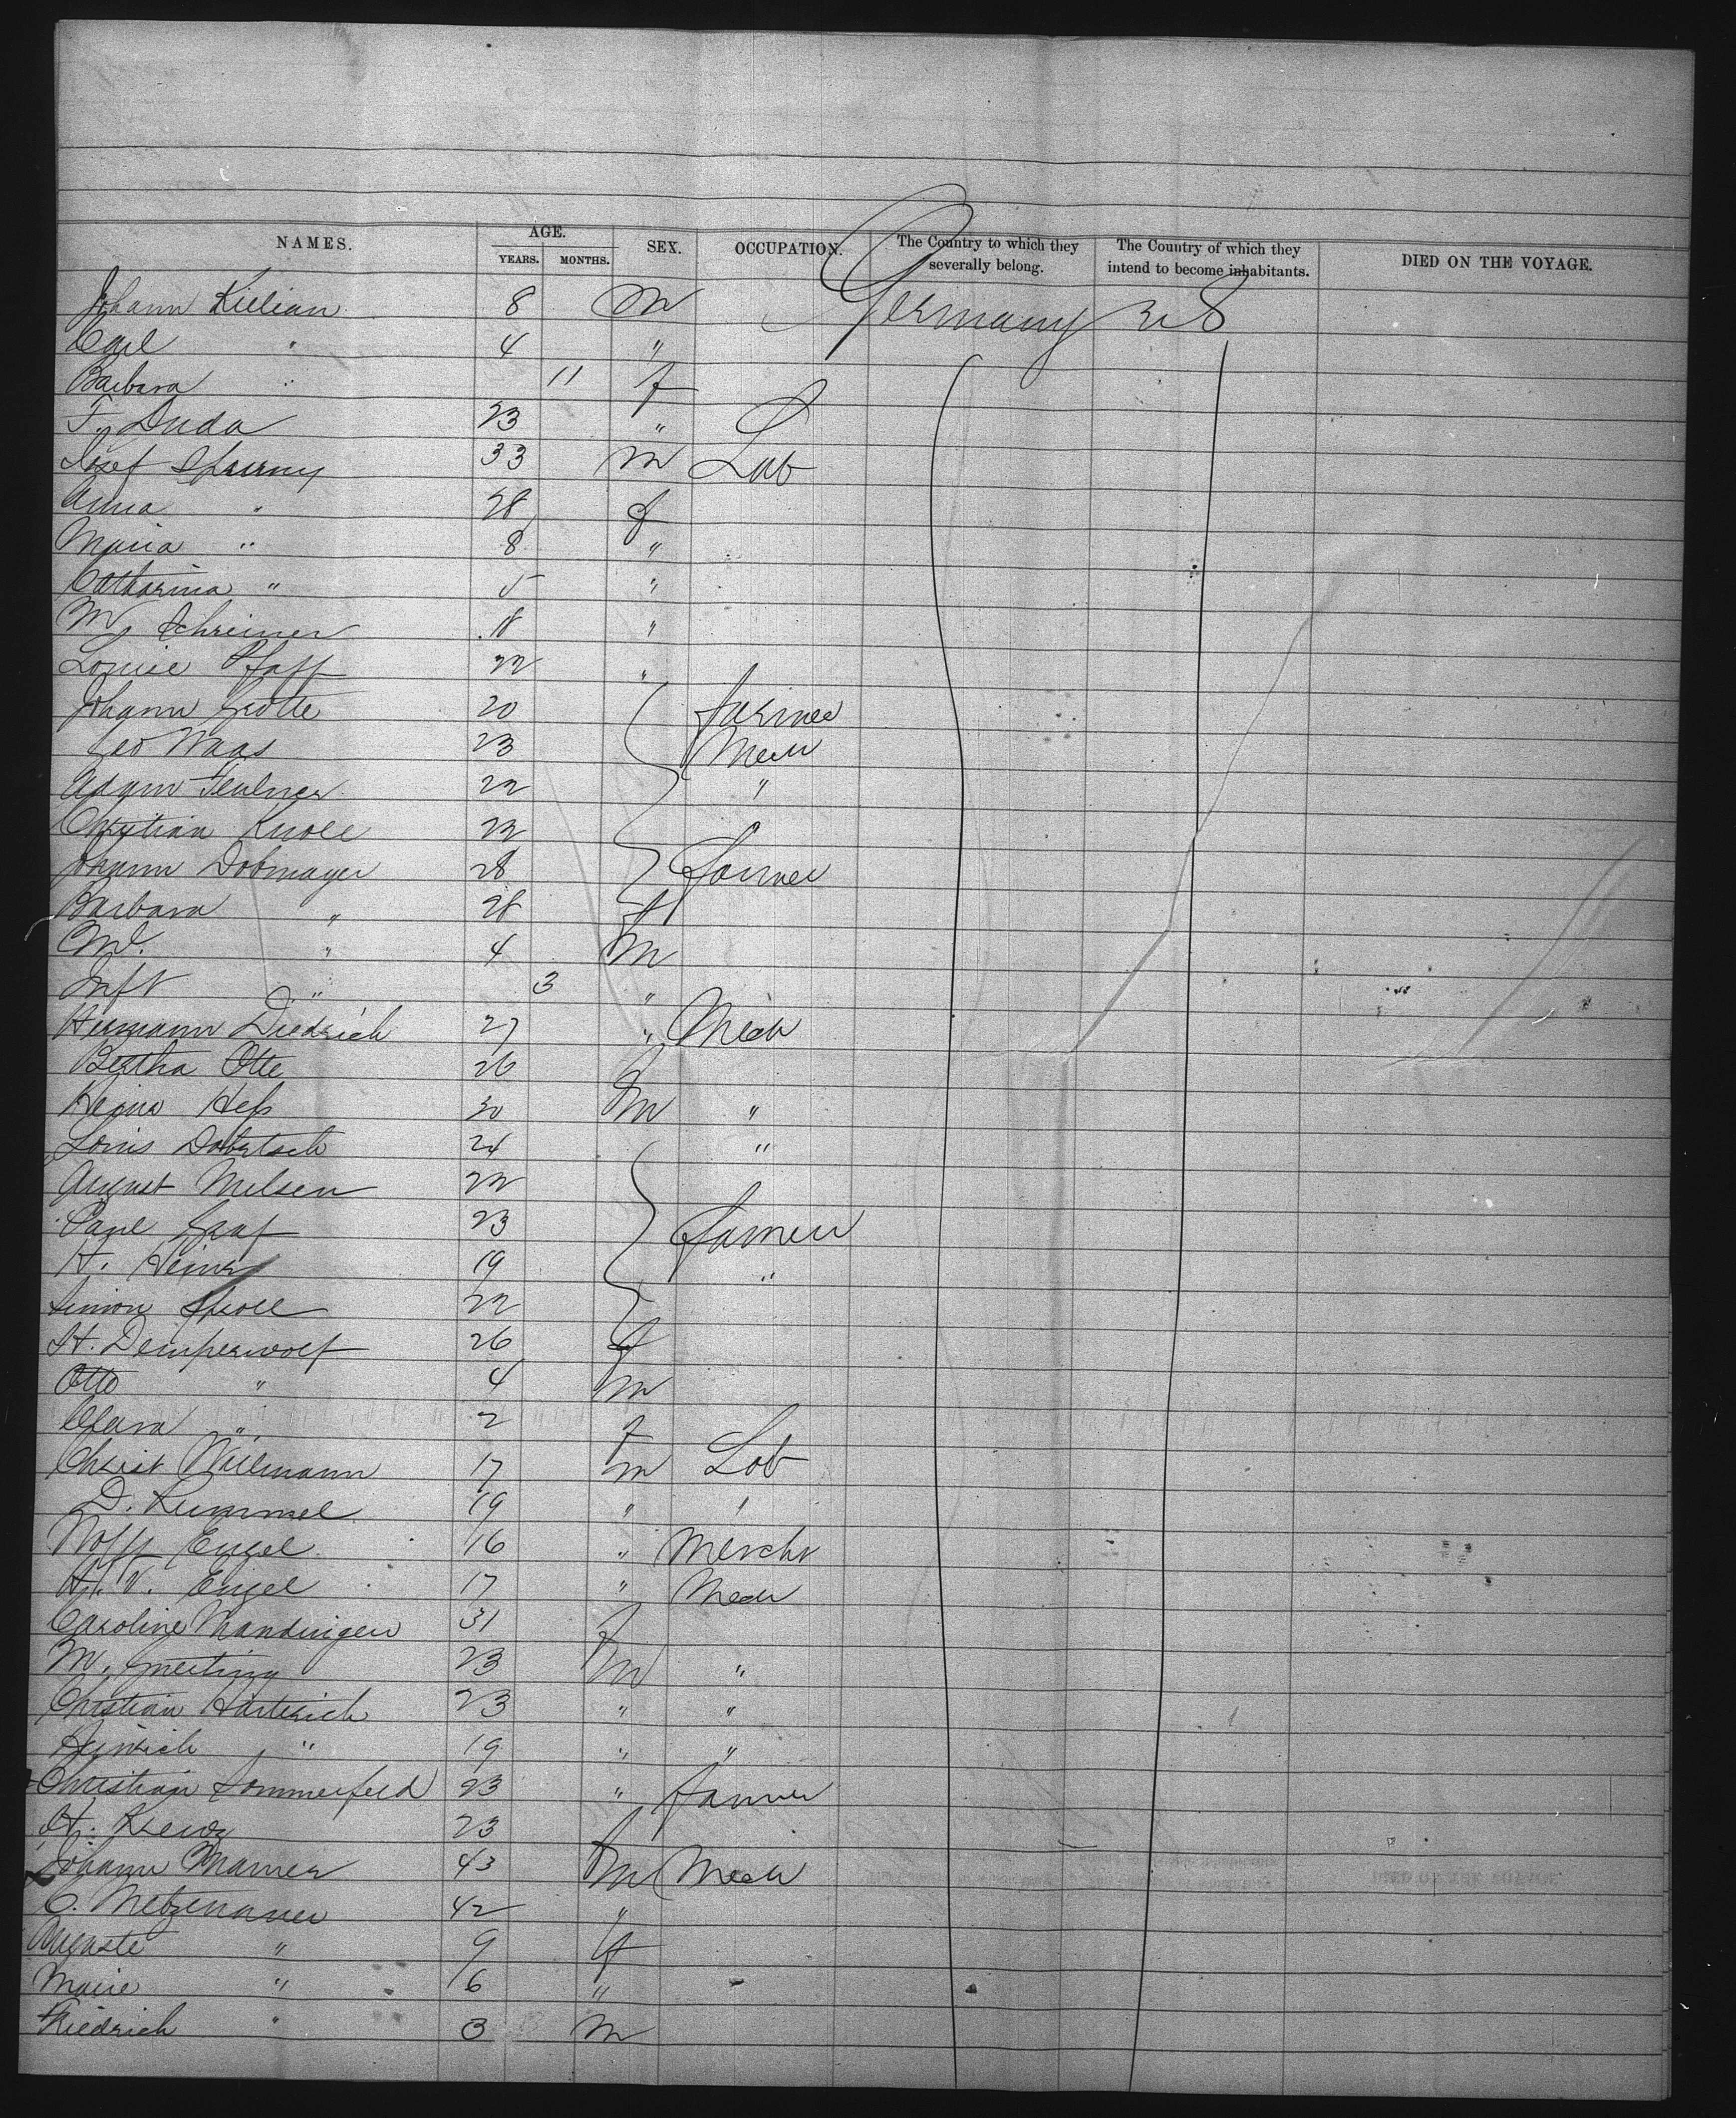 NAMES. AGE. SEX. OCCUPATION. The Country to which they severally belong. The Country of which they intend to become inhabitants. DIED ON THE VOYAGE.
YEARS. MONTHS.
Johann Killian 8 m Germany U S
Carl " 4 "
Barbara " 11 f
F. Duda 23 "
Josef 33 m Lab
Anna " 28 f
Maria " 8 "
Catharina " 5 "
M Schreiner 18 "
Louise Pfaff 22 "
Johann Grotte 20 farmer
Geo Maas 23 Mech
Adam 22 "
Christian Knoll 22
Johann Dobmayer 28 farmer
Barbara " 28 f
" 4 m
Inft " 3 "
Hermann Diedrich 27 " Mech
Bertha Otte 26 f
Hess 30 m "
Louis 24 "
August Melsen 22
Graf 23 farmer
H. Heinz 19 "
Simon 22
H. Demperwolf 26 f
Otto " 4 m
Clara " 2 f
Christ Willmann 17 m Lab
D. Kummel 19 " "
Wolff Engel 16 " Mercht
H. V. Engel 17 " Mech
Caroline Mandinger 31 f
M. 23 m "
Christian Harterich 23 " "
Heinrich " 19 " "
Christian Sommerfeld 23 " farmer
H. 23 f
Johann 43 m Mech
C. Metzenauer 42 "
Auguste " 9 f
Marie " 6 "
Friedrich " 3 m